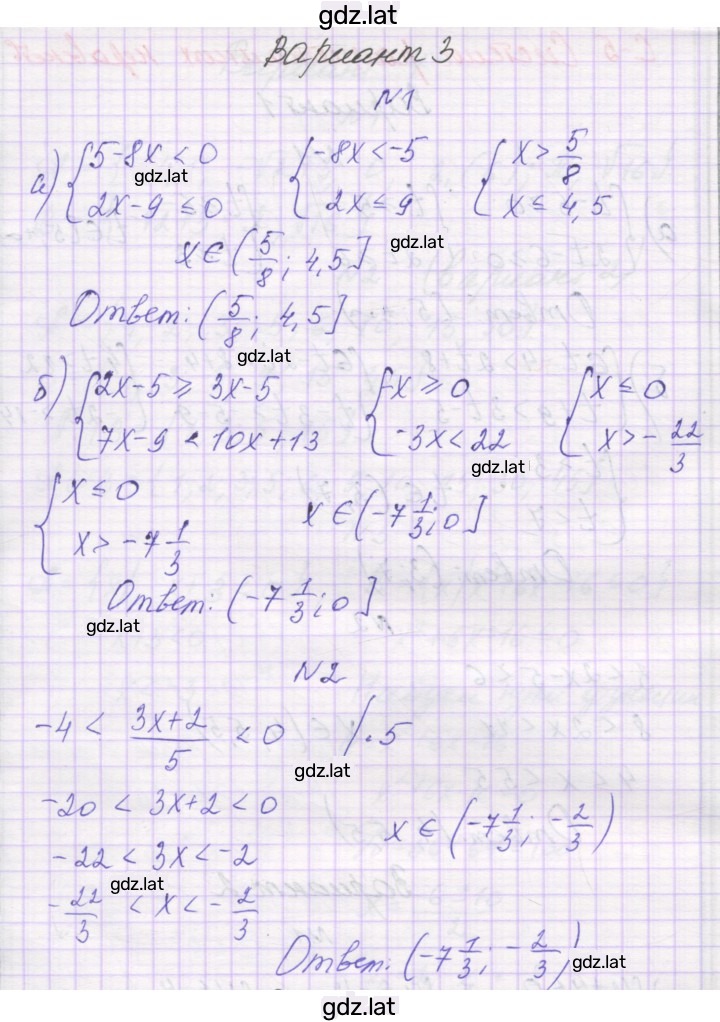 gdz.lat
Вариант 3
N1
а) { 5-8x < 0 { -8x < -5 { x > 5/8
gdz.lat
2x-9 ≤ 0 2x ≤ 9 x ≤ 4,5
x ∈ (5/8; 4,5] gdz.lat
Ответ: (5/8; 4,5]
gdz.lat
б) { 2x-5 ≥ 3x-5 { -x ≥ 0 { x ≤ 0
7x-9 < 10x+13 -3x < 22 x > -22/3
gdz.lat
{ x ≤ 0
x > -7 1/3 x ∈ (-7 1/3; 0]
Ответ: (-7 1/3; 0]
gdz.lat
N2
-4 < (3x+2)/5 < 0 /·5
gdz.lat
-20 < 3x+2 < 0
x ∈ (-7 1/3; -2/3)
-22 < 3x < -2
gdz.lat
-22/3 < x < -2/3
Ответ: (-7 1/3; -2/3)
gdz.lat
gdz.lat